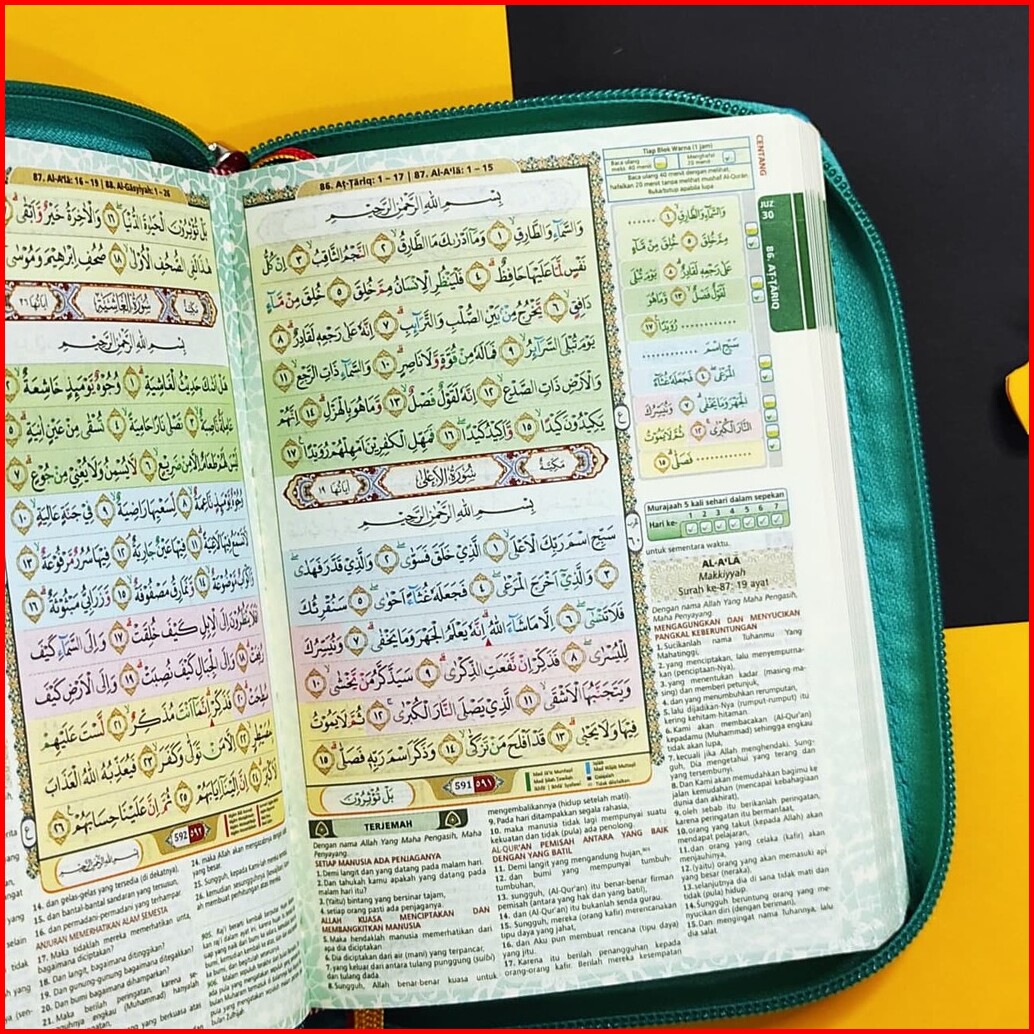 86. Aṭ-Ṭāriq: 1 – 17 | 87. Al-A‘lā: 1 – 15
بِسْمِ اللّٰهِ الرَّحْمٰنِ الرَّحِيْمِ
وَالسَّمَاۤءِ وَالطَّارِقِۙ ١ وَمَآ اَدْرٰىكَ مَا الطَّارِقُۙ ٢ النَّجْمُ الثَّاقِبُۙ ٣ اِنْ كُلُّ
نَفْسٍ لَّمَّا عَلَيْهَا حَافِظٌۗ ٤ فَلْيَنْظُرِ الْاِنْسَانُ مِمَّ خُلِقَ ٥ خُلِقَ مِنْ مَّاۤءٍ
دَافِقٍۙ ٦ يَّخْرُجُ مِنْۢ بَيْنِ الصُّلْبِ وَالتَّرَاۤىِٕبِۗ ٧ اِنَّهٗ عَلٰى رَجْعِهٖ لَقَادِرٌۗ ٨
يَوْمَ تُبْلَى السَّرَاۤىِٕرُۙ ٩ فَمَا لَهٗ مِنْ قُوَّةٍ وَّلَا نَاصِرٍۗ ١٠ وَالسَّمَاۤءِ ذَاتِ الرَّجْعِۙ ١١
وَالْاَرْضِ ذَاتِ الصَّدْعِۙ ١٢ اِنَّهٗ لَقَوْلٌ فَصْلٌۙ ١٣ وَّمَا هُوَ بِالْهَزْلِۗ ١٤ اِنَّهُمْ
يَكِيْدُوْنَ كَيْدًاۙ ١٥ وَّاَكِيْدُ كَيْدًاۖ ١٦ فَمَهِّلِ الْكٰفِرِيْنَ اَمْهِلْهُمْ رُوَيْدًا ١٧
مَكِّيَّةٌ سُوْرَةُ الْاَعْلٰى اٰيَاتُهَا ١٩
بِسْمِ اللّٰهِ الرَّحْمٰنِ الرَّحِيْمِ
سَبِّحِ اسْمَ رَبِّكَ الْاَعْلَىۙ ١ الَّذِيْ خَلَقَ فَسَوّٰىۖ ٢ وَالَّذِيْ قَدَّرَ فَهَدٰىۖ
٣ وَالَّذِيْٓ اَخْرَجَ الْمَرْعٰىۖ ٤ فَجَعَلَهٗ غُثَاۤءً اَحْوٰىۖ ٥ سَنُقْرِئُكَ
فَلَا تَنْسٰىٓۖ ٦ اِلَّا مَا شَاۤءَ اللّٰهُ ۗاِنَّهٗ يَعْلَمُ الْجَهْرَ وَمَا يَخْفٰىۗ ٧ وَنُيَسِّرُكَ
لِلْيُسْرٰىۖ ٨ فَذَكِّرْ اِنْ نَّفَعَتِ الذِّكْرٰىۗ ٩ سَيَذَّكَّرُ مَنْ يَّخْشٰىۙ ١٠
وَيَتَجَنَّبُهَا الْاَشْقَىۙ ١١ الَّذِيْ يَصْلَى النَّارَ الْكُبْرٰىۚ ١٢ ثُمَّ لَا يَمُوْتُ
فِيْهَا وَلَا يَحْيٰىۗ ١٣ قَدْ اَفْلَحَ مَنْ تَزَكّٰىۙ ١٤ وَذَكَرَ اسْمَ رَبِّهٖ فَصَلّٰىۗ ١٥
591 ٥٩١
بَلْ تُؤْثِرُوْنَ
Tiap Blok Warna (1 jam)
Baca ulang
maks. 40 menit
Menghafal
20 menit
Baca ulang 40 menit dengan melihat,
hafalkan 20 menit tanpa melihat mushaf Al-Qur'an.
Buka/tutup apabila lupa
CENTANG
JUZ
30
86. AṬ-ṬĀRIQ
وَالسَّمَاۤءِ وَالطَّارِقِ ١ ......
مِمَّ خُلِقَ ٥ خُلِقَ مِنْ مَّاۤءٍ
عَلٰى رَجْعِهٖ لَقَادِرٌ ٨ يَوْمَ تُبْلَى
لَقَوْلٌ فَصْلٌ ١٣ وَّمَا هُوَ
............ رُوَيْدًا ١٧
سَبِّحِ اسْمَ ............
الْمَرْعٰى ٤ فَجَعَلَهٗ غُثَاۤءً
الْجَهْرَ وَمَا يَخْفٰى ٧ وَنُيَسِّرُكَ
النَّارَ الْكُبْرٰى ١٢ ثُمَّ لَا يَمُوْتُ
............ فَصَلّٰى ١٥
Murajaah 5 kali sehari dalam sepekan
Hari ke: 1 2 3 4 5 6 7
TERJEMAH
Dengan nama Allah Yang Maha Pengasih, Maha
Penyayang.
SETIAP MANUSIA ADA PENJAGANYA
1. Demi langit dan yang datang pada malam hari.
2. Dan tahukah kamu apakah yang datang pada
malam hari itu?
3. (Yaitu) bintang yang bersinar tajam,
4. setiap orang pasti ada penjaganya.
ALLAH KUASA MENCIPTAKAN DAN
MEMBANGKITKAN MANUSIA
5. Maka hendaklah manusia memerhatikan dari
apa dia diciptakan.
6. Dia diciptakan dari air (mani) yang terpancar,
7. yang keluar dari antara tulang punggung (sulbi)
dan tulang dada.
8. Sungguh, Allah benar-benar kuasa untuk
mengembalikannya (hidup setelah mati).
9. Pada hari ditampakkan segala rahasia,
10. maka manusia tidak lagi mempunyai suatu
kekuatan dan tidak (pula) ada penolong.
AL-QUR'AN PEMISAH ANTARA YANG BAIK
DENGAN YANG BATIL
11. Demi langit yang mengandung hujan,
12. dan bumi yang mempunyai tumbuh-
tumbuhan,
13. sungguh, (Al-Qur'an) itu benar-benar firman
pemisah (antara yang hak dan yang batil),
14. dan (Al-Qur'an) itu bukanlah senda gurau.
15. Sungguh, mereka (orang kafir) merencanakan
tipu daya yang jahat,
16. dan Aku pun membuat rencana (tipu daya)
yang jitu.
17. Karena itu berilah penangguhan kepada
orang-orang kafir. Berilah mereka kesempatan
untuk sementara waktu.
AL-A‘LĀ
Makkiyyah
Surah ke-87: 19 ayat
Dengan nama Allah Yang Maha Pengasih,
Maha Penyayang.
MENGAGUNGKAN DAN MENYUCIKAN
PANGKAL KEBERUNTUNGAN
1. Sucikanlah nama Tuhanmu Yang
Mahatinggi,
2. yang menciptakan, lalu menyempurna-
kan (penciptaan-Nya),
3. yang menentukan kadar (masing-ma-
sing) dan memberi petunjuk,
4. dan yang menumbuhkan rerumputan,
5. lalu dijadikan-Nya (rumput-rumput) itu
kering kehitam-hitaman.
6. Kami akan membacakan (Al-Qur'an)
kepadamu (Muhammad) sehingga engkau
tidak akan lupa,
7. kecuali jika Allah menghendaki. Sung-
guh, Dia mengetahui yang terang dan
yang tersembunyi.
8. Dan Kami akan memudahkan bagimu ke
jalan kemudahan (mencapai kebahagiaan
dunia dan akhirat),
9. oleh sebab itu berikanlah peringatan,
karena peringatan itu bermanfaat,
10. orang yang takut (kepada Allah) akan
mendapat pelajaran,
11. dan orang yang celaka (kafir) akan
menjauhinya,
12. (yaitu) orang yang akan memasuki api
yang besar (neraka),
13. selanjutnya dia di sana tidak mati dan
tidak (pula) hidup.
14. Sungguh beruntung orang yang me-
nyucikan diri (dengan beriman),
15. Dan mengingat nama Tuhannya, lalu
dia salat.
87. Al-A‘lā: 16 – 19 | 88. Al-Gāsyiyah: 1 – 26
بَلْ تُؤْثِرُوْنَ الْحَيٰوةَ الدُّنْيَاۖ ١٦ وَالْاٰخِرَةُ خَيْرٌ وَّاَبْقٰىۗ
هٰذَا لَفِى الصُّحُفِ الْاُوْلٰىۙ ١٨ صُحُفِ اِبْرٰهِيْمَ وَمُوْسٰى
مَكِّيَّةٌ سُوْرَةُ الْغَاشِيَةِ اٰيَاتُهَا ٢٦
بِسْمِ اللّٰهِ الرَّحْمٰنِ الرَّحِيْمِ
هَلْ اَتٰىكَ حَدِيْثُ الْغَاشِيَةِۗ ١ وُجُوْهٌ يَّوْمَىِٕذٍ خَاشِعَةٌۙ ٢
عَامِلَةٌ نَّاصِبَةٌۙ ٣ تَصْلٰى نَارًا حَامِيَةًۙ ٤ تُسْقٰى مِنْ عَيْنٍ اٰنِيَةٍۗ ٥
لَيْسَ لَهُمْ طَعَامٌ اِلَّا مِنْ ضَرِيْعٍۙ ٦ لَّا يُسْمِنُ وَلَا يُغْنِيْ مِنْ جُوْعٍۗ ٧
وُجُوْهٌ يَّوْمَىِٕذٍ نَّاعِمَةٌۙ ٨ لِّسَعْيِهَا رَاضِيَةٌۙ ٩ فِيْ جَنَّةٍ عَالِيَةٍۙ ١٠
لَّا تَسْمَعُ فِيْهَا لَاغِيَةًۗ ١١ فِيْهَا عَيْنٌ جَارِيَةٌۘ ١٢ فِيْهَا سُرُرٌ مَّرْفُوْعَةٌۙ ١٣
وَّاَكْوَابٌ مَّوْضُوْعَةٌۙ ١٤ وَّنَمَارِقُ مَصْفُوْفَةٌۙ ١٥ وَّزَرَابِيُّ مَبْثُوْثَةٌۗ ١٦
اَفَلَا يَنْظُرُوْنَ اِلَى الْاِبِلِ كَيْفَ خُلِقَتْۗ ١٧ وَاِلَى السَّمَاۤءِ كَيْفَ
رُفِعَتْۗ ١٨ وَاِلَى الْجِبَالِ كَيْفَ نُصِبَتْۗ ١٩ وَاِلَى الْاَرْضِ كَيْفَ
سُطِحَتْۗ ٢٠ فَذَكِّرْۗ اِنَّمَآ اَنْتَ مُذَكِّرٌۙ ٢١ لَّسْتَ عَلَيْهِمْ
بِمُصَيْطِرٍۙ ٢٢ اِلَّا مَنْ تَوَلّٰى وَكَفَرَۙ ٢٣ فَيُعَذِّبُهُ اللّٰهُ الْعَذَابَ
الْاَكْبَرَۗ ٢٤ اِنَّ اِلَيْنَآ اِيَابَهُمْ ٢٥ ثُمَّ اِنَّ عَلَيْنَا حِسَابَهُمْ ٢٦
592 ٥٩٢
14. dan gelas-gelas yang tersedia (di dekatnya).
15. dan bantal-bantal sandaran yang tersusun,
16. dan permadani-permadani yang terhampar.
ANJURAN MEMERHATIKAN ALAM SEMESTA
17. Maka tidaklah mereka memerhatikan unta,
bagaimana diciptakan?
18. Dan langit, bagaimana ditinggikan?
19. Dan gunung-gunung bagaimana ditegakkan?
20. Dan bumi bagaimana dihamparkan?
21. Maka berilah peringatan, karena